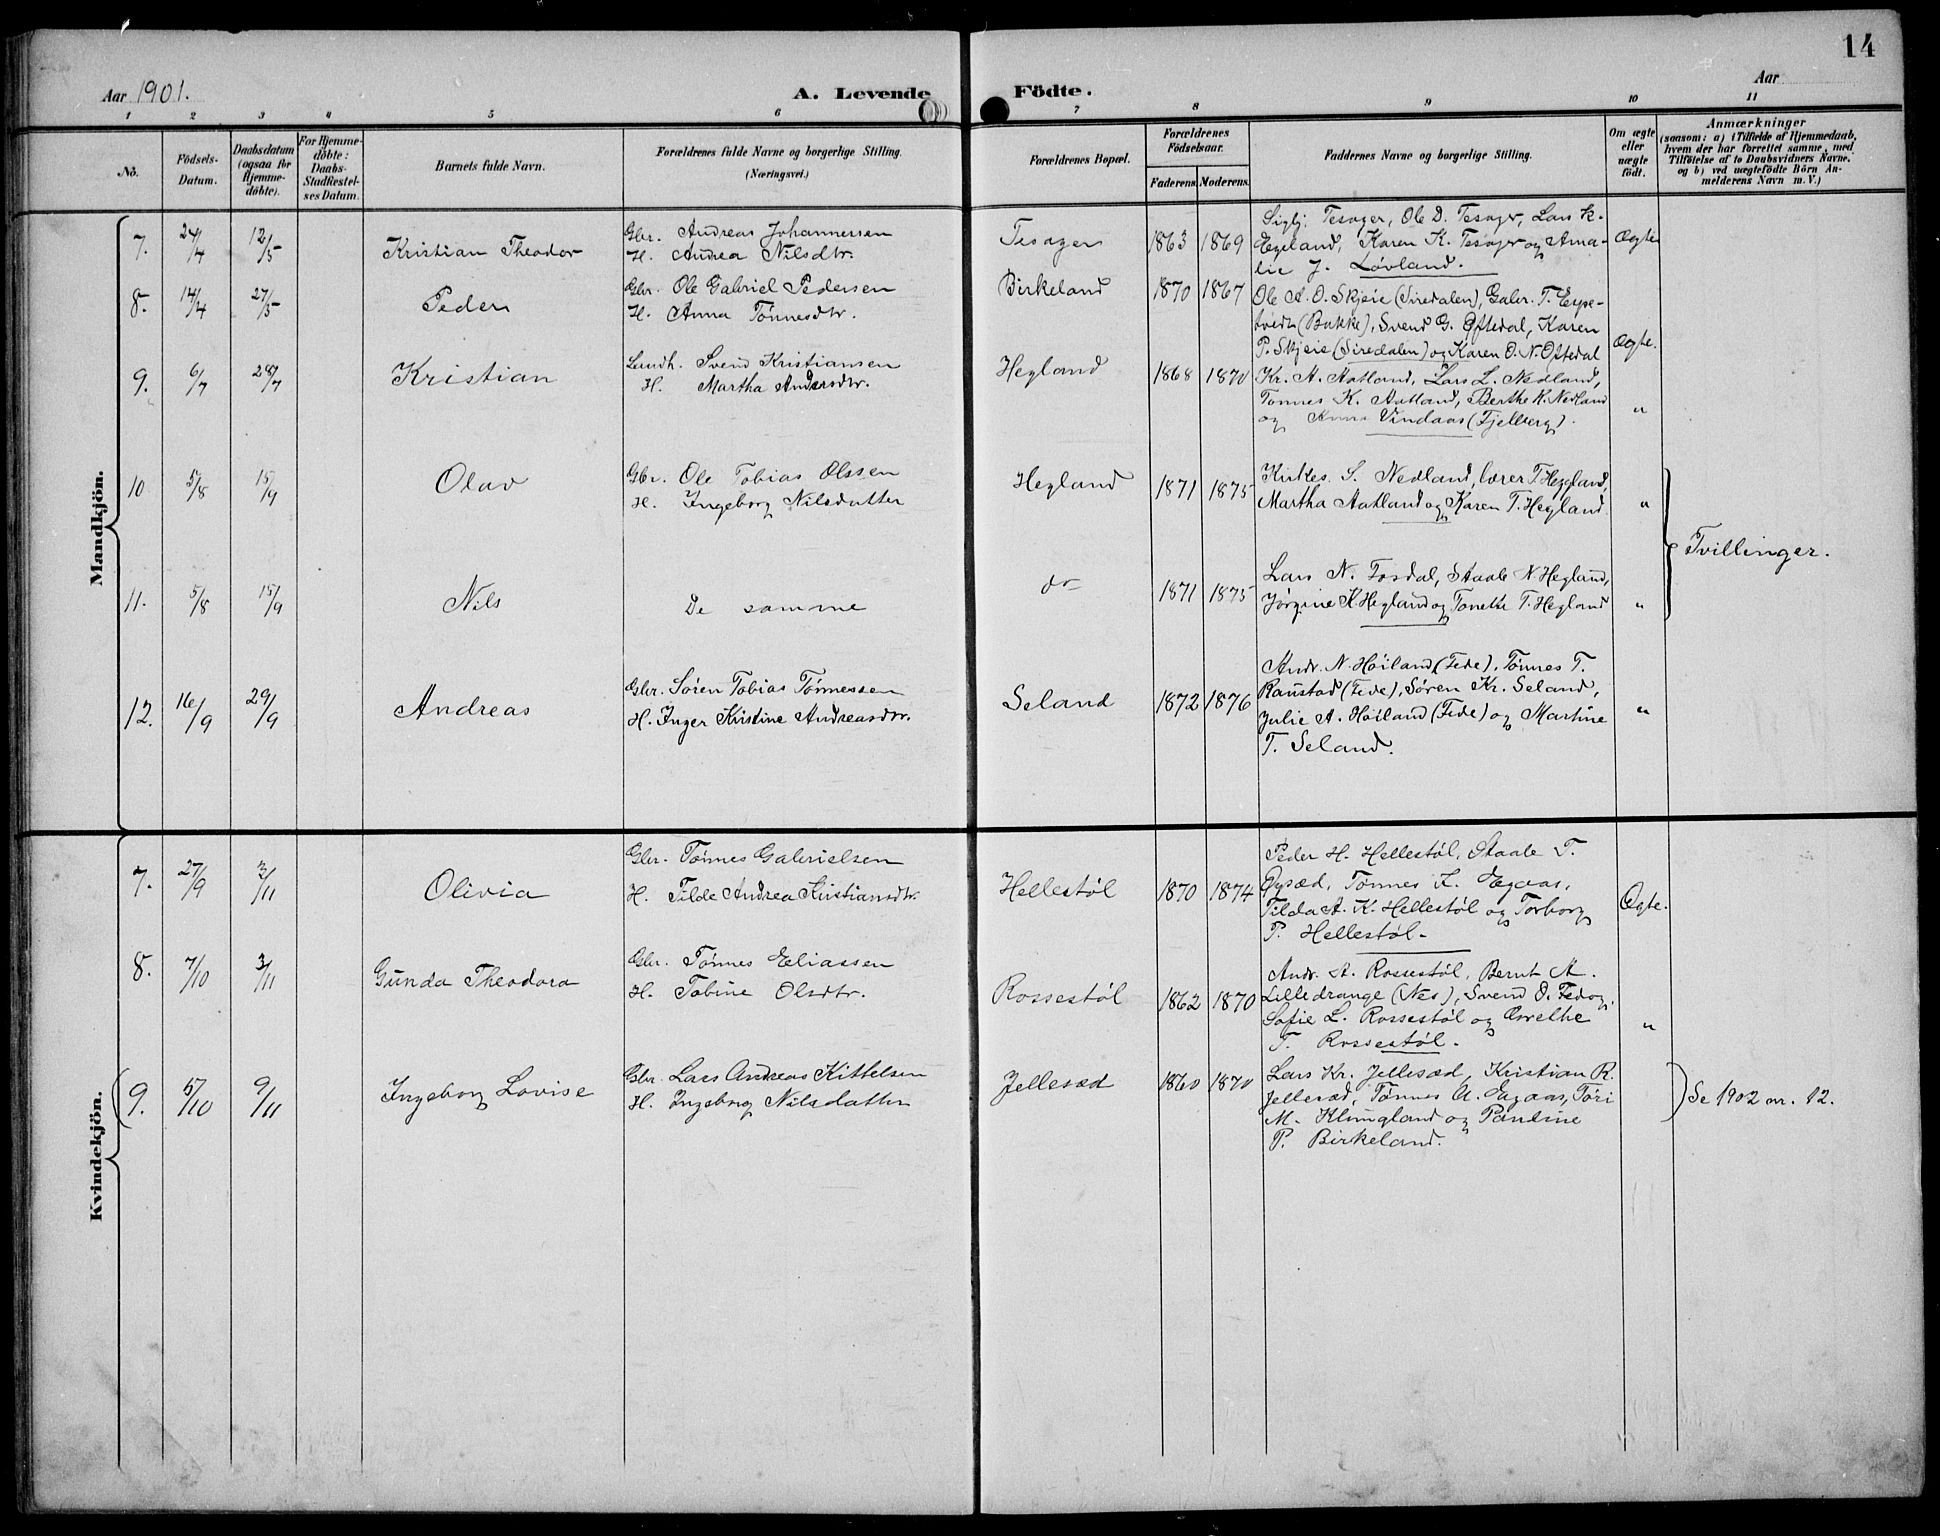 14
Aar 1901.
A. Levende Födte.
Aar
1 2 3 4 5 6 7 8 9 10 11
No.
Födsels-Datum.
Daabsdatum (ogsaa for Hjemme-döbte).
For Hjemme-döbte: Daabs-Stadfæstel-ses Datum.
Barnets fulde Navn.
Forældrenes fulde Navne og borgerlige Stilling.
(Næringsvei.)
Forældrenes Bopæl.
Forældrenes Födselsaar.
Faderens. Moderens.
Faddernes Navne og borgerlige Stilling.
Om ægte eller uægte födt.
Anmærkninger
(saasom: a) i Tilfælde af Hjemmedaab,
hvem der har forrettet samme, med
Tilföielse af to Daabsvidners Navne.
og b) ved uægtefödte Börn An-
melderens Navn m. V.)
Mandkjön.
7. 24/4 12/5 Kristian Theodor
Gbr. Andreas Johannessen
H. Andrea Nilsdtr.
Tesager 1863 1869
Tesager, Ole D. Tesager, Lars K.
Egeland, Karen K. Tesager og Ama-
lie J. Løvland.
Ægte
8. 14/4 27/5 Peder
Gbr. Ole Gabriel Pedersen
H. Anna Tönnesdtr.
Birkeland 1870 1867
Ole A. O. Skjeie (Siredalen), Gabr. T. Erpe-
tvedt (Bakke), Svend G. Oftedal, Karen
P. Skjeie (Siredalen) og Karen O. N. Oftedal
Ægte.
9. 6/7 28/7 Kristian
Landh. Svend Kristiansen
H. Martha Andersdtr.
Hegland 1868 1870
Kr. A. Aatland, Lars L. Nedland,
Tönnes K. Aatland, Berthe K. Nedland
og Anna Vindaas (Fjelberg).
"
10 5/8 15/9 Olav
Gbr. Ole Tobias Olssen
H. Ingeborg Nilsdatter
Hegland 1871 1875
S. Nedland, lærer T. Hegland,
Martha Aatland og Karen T. Hegland.
"
Tvillinger.
11. 5/8 15/9 Nils
De samme
do 1871 1875
Lars N. Tosdal, Staale N. Hegland,
Jørgine K. Hegland og Tonette T. Hegland
"
12. 16/9 29/9 Andreas
Gbr. Søren Tobias Tønnessen
H. Inger Kristine Andreasdtr.
Seland 1872 1876
Andr. N. Høiland (Fede), Tønnes T.
Raustad (Fede), Søren Kr. Seland,
Julie A. Høiland (Fede) og Martine
T. Seland.
"
Kvindekjön.
7. 27/9 3/11 Olivia
Gbr. Tønnes Gabrielsen
H. Tilde Andrea Kristiansdtr.
Hellestøl 1870 1874
Peder H. Hellestøl, Staale T.
Øysæd, Tønnes K. Egaas,
Tilda A. K. Hellestøl og Torborg
P. Hellestøl.
Ægte.
8. 7/10 3/11 Gunda Theodora
Gbr. Tønnes Eliassen
H. Tobine Olsdtr.
Rossestøl 1862 1870
Andr. A. Rossestøl, Bernt A.
Lilledrange (Nes), Svend O. Fedog,
Sofie L. Rossestøl og
T. Rossestøl.
"
9. 5/10 9/11 Ingeborg Lovise
Gbr. Lars Andreas Kittelsen
H. Ingeborg Nilsdatter
Jellesæd 1860 1870
Lars Kr. Jellesæd, Kristian R.
Jellesæd, Tønnes A. Egaas, Tøri
M. Klungland og Pauline
P. Birkeland.
Se 1902 nr. 12.